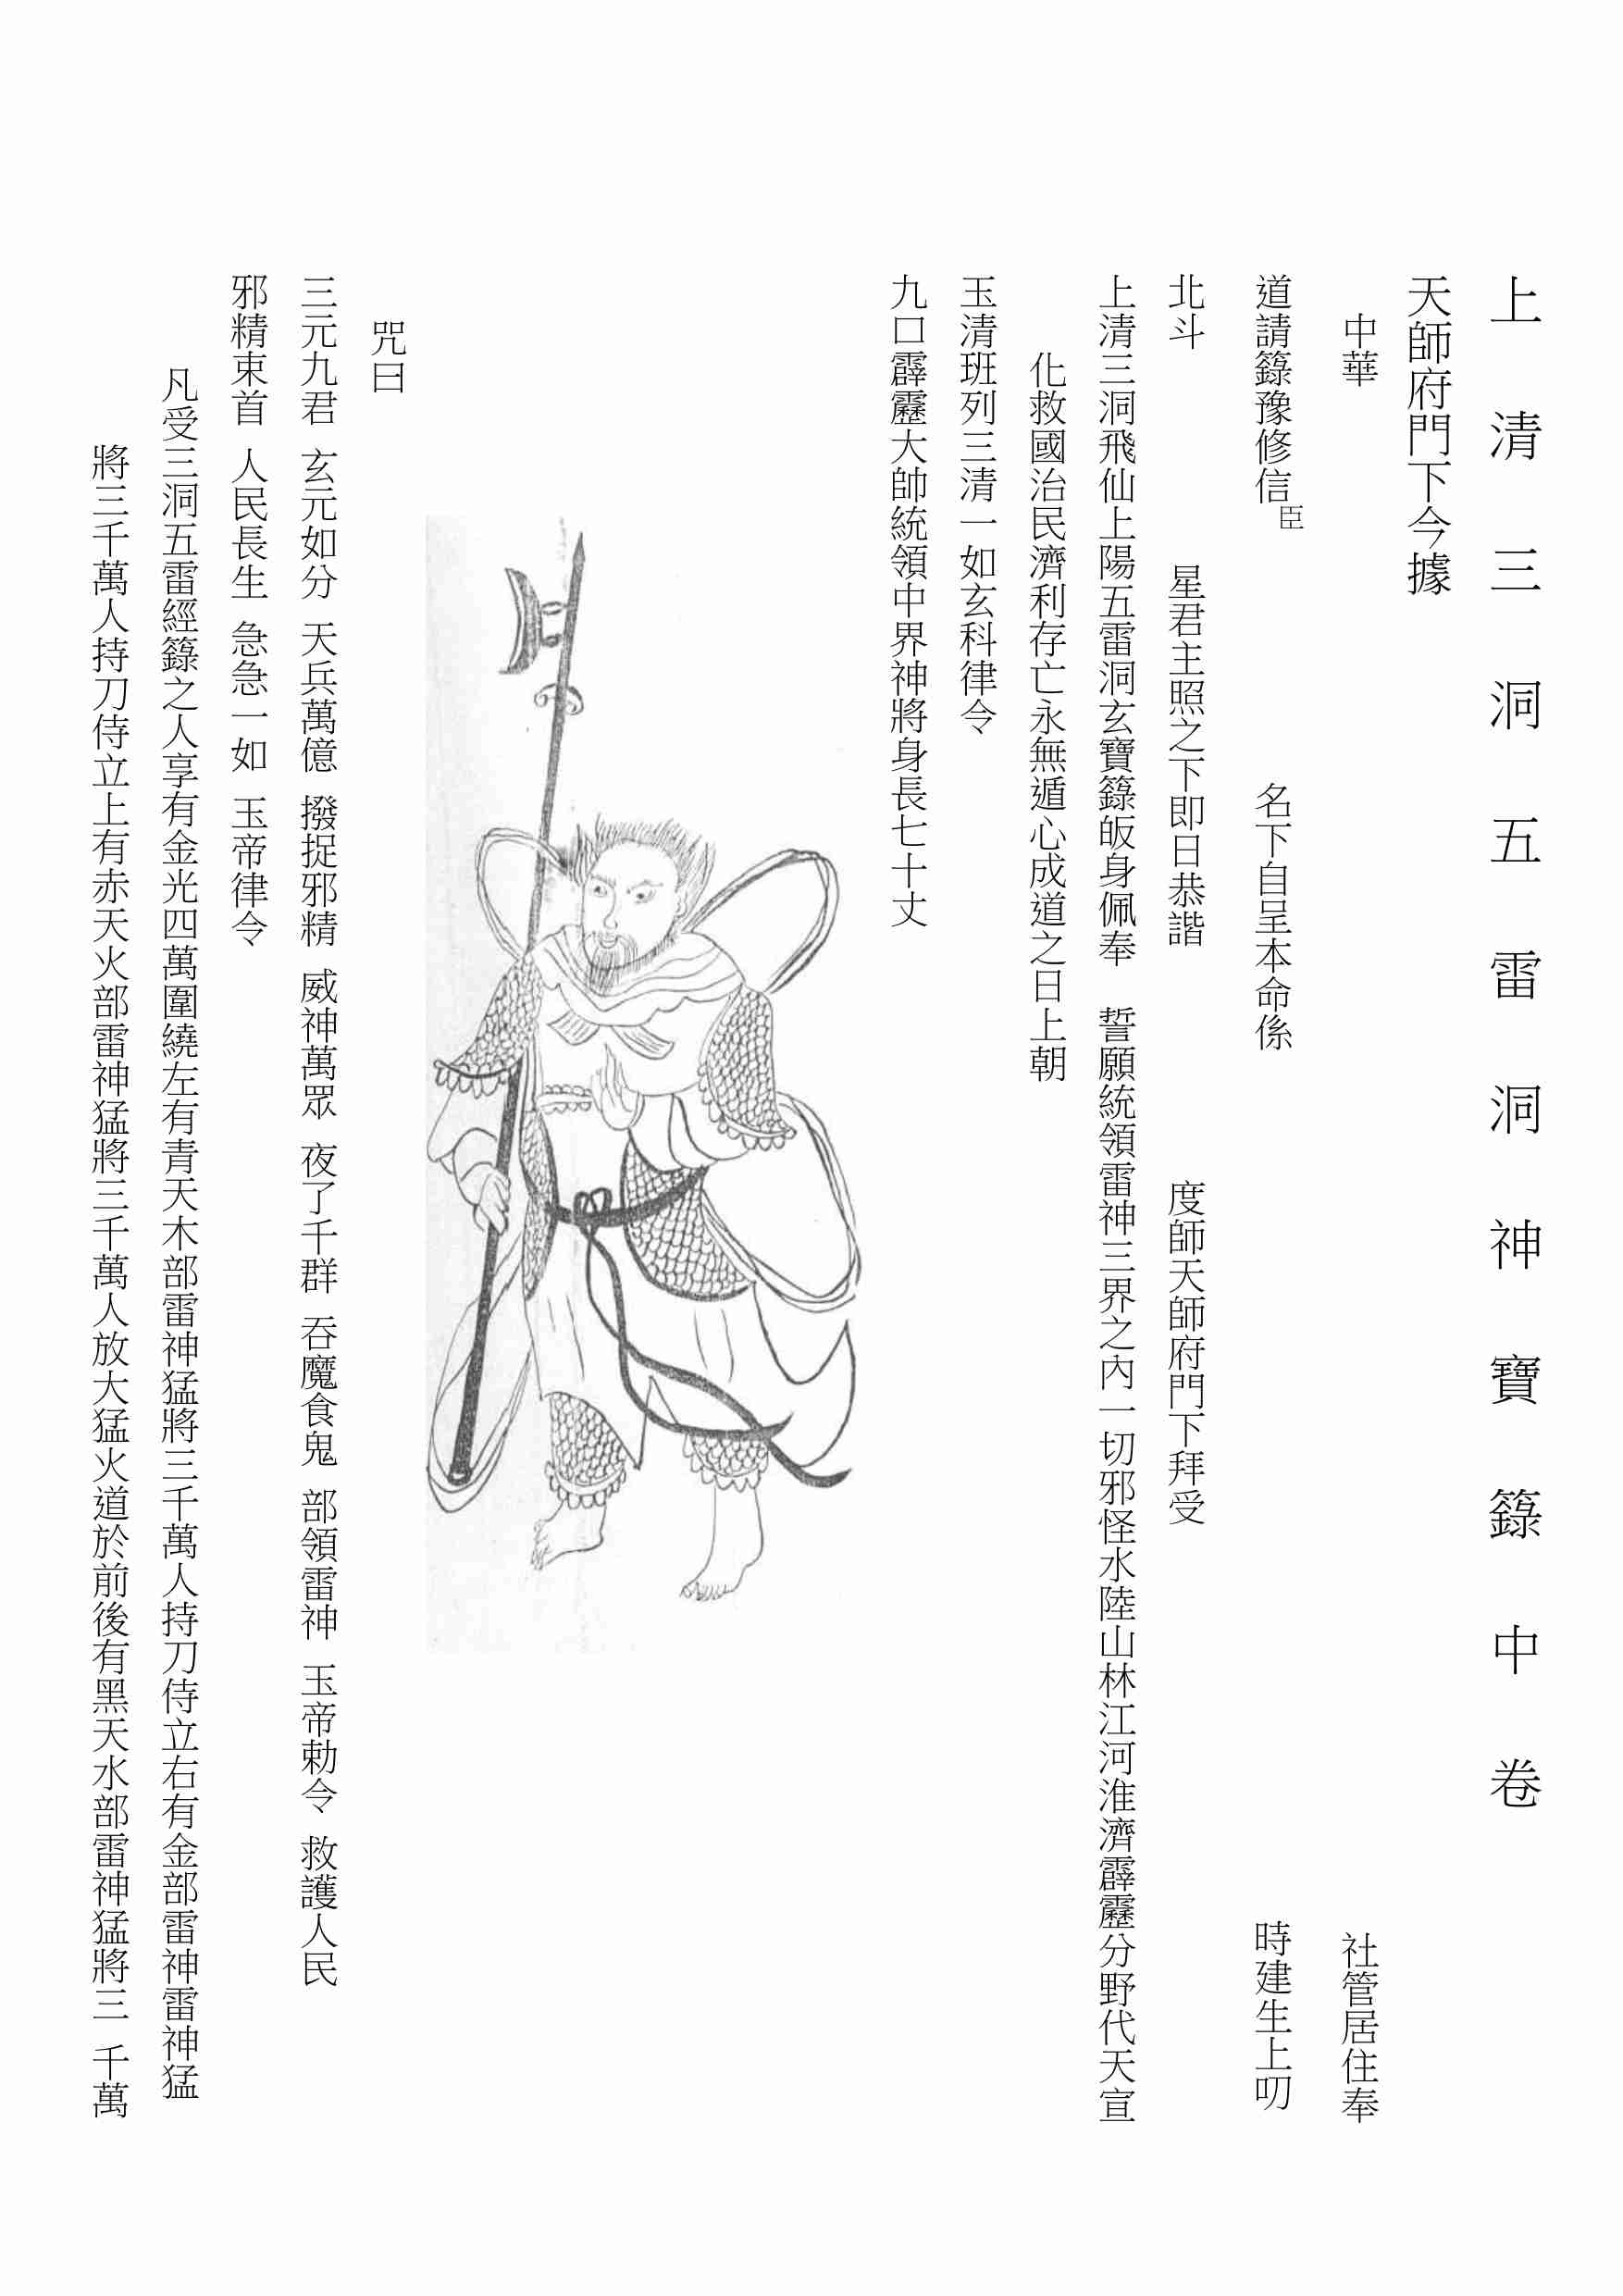 上清三洞五雷洞神寶籙中卷
天師府門下今據
中華 社管居住奉
道請籙豫修信臣 名下自呈本命係 時建生上叨
北斗 星君主照之下即日恭諧 度師天師府門下拜受
上清三洞飛仙上陽五雷洞玄寶籙皈身佩奉 誓願統領雷神三界之內一切邪怪水陸山林江河淮濟霹靂分野代天宣
化救國治民濟利存亡永無遁心成道之日上朝
玉清班列三清一如玄科律令
九口霹靂大帥統領中界神將身長七十丈
咒曰
三元九君 玄元如分 天兵萬億 撥捉邪精 威神萬眾 夜了千群 吞魔食鬼 部領雷神 玉帝勅令 救護人民
邪精束首 人民長生 急急一如 玉帝律令
凡受三洞五雷經籙之人享有金光四萬圍繞左有青天木部雷神猛將三千萬人持刀侍立右有金部雷神雷神猛
將三千萬人持刀侍立上有赤天火部雷神猛將三千萬人放大猛火道於前後有黑天水部雷神猛將三 千萬